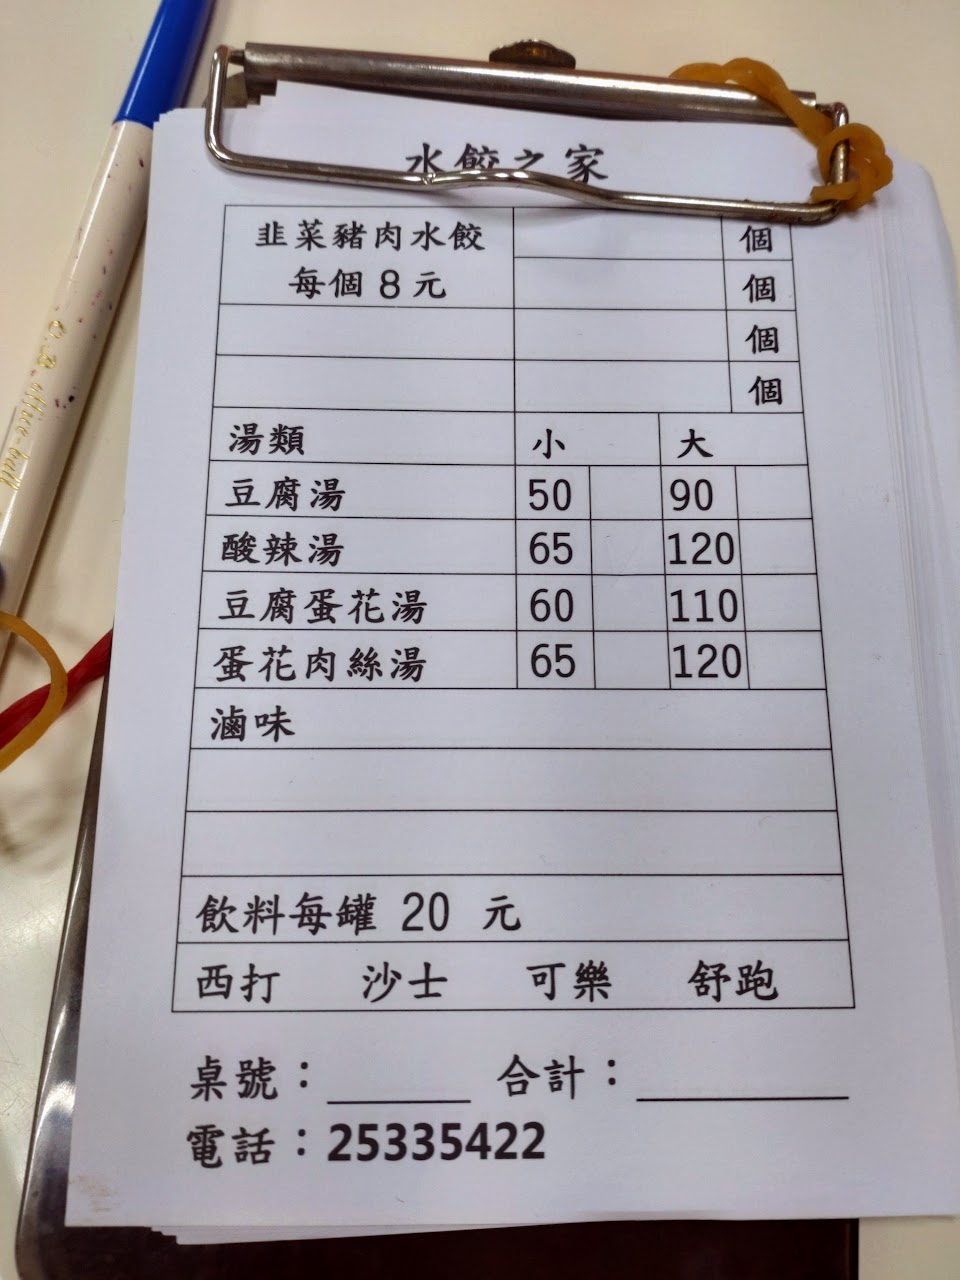 水餃之家
韭菜豬肉水餃 個
每個 8 元 個
個
個
湯類 小 大
豆腐湯 50 90
酸辣湯 65 120
豆腐蛋花湯 60 110
蛋花肉絲湯 65 120
滷味
飲料每罐 20 元
西打 沙士 可樂 舒跑
桌號：
合計：
電話：25335422
O.B office-ball